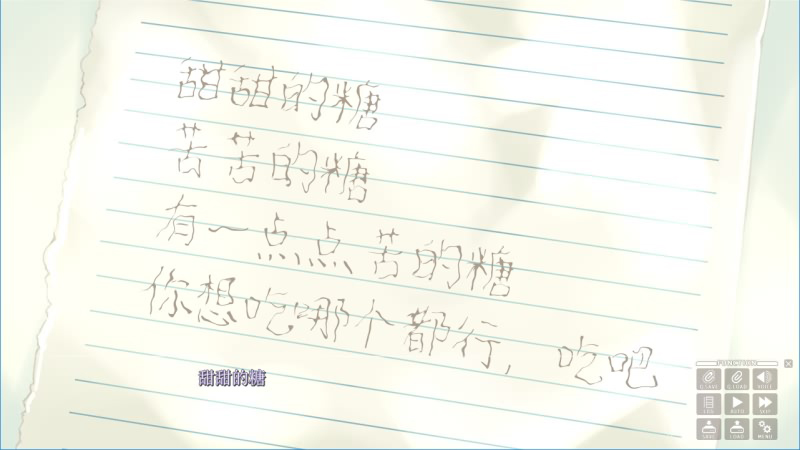 甜甜的糖
苦苦的糖
有一点点苦的糖
你想吃哪个都行，吃吧
甜甜的糖
FUNCTION
Q.SAVE Q.LOAD VOICE
LOG AUTO SKIP
SAVE LOAD MENU